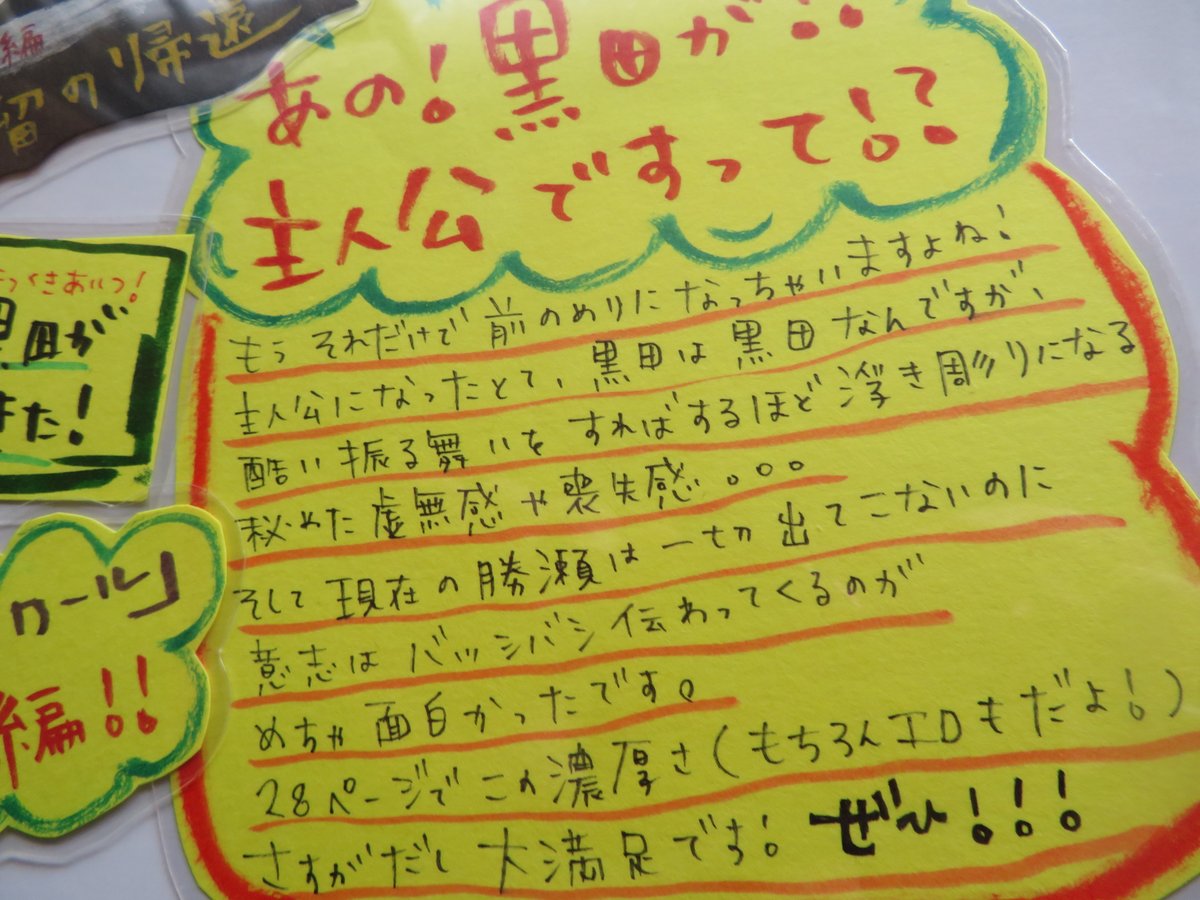 編
留の帰還
あの！黒田が!!
主人公ですって!?
もうそれだけで前のめりになっちゃいますよね！
主人公になったとて、黒田は黒田なんですが、
酷い振る舞いをすればするほど浮き彫りになる
秘めた虚無感や喪失感。。。
そして現在の勝瀬は一切出てこないのに
意志はバッシバシ伝わってくるのが
めちゃ面白かったです。
28ページでこの濃厚さ(もちろんエロもだよ！)
さすがだし大満足です！ぜひ!!!
くきあいつ！
黒田が
きた！
ロール」
編!!